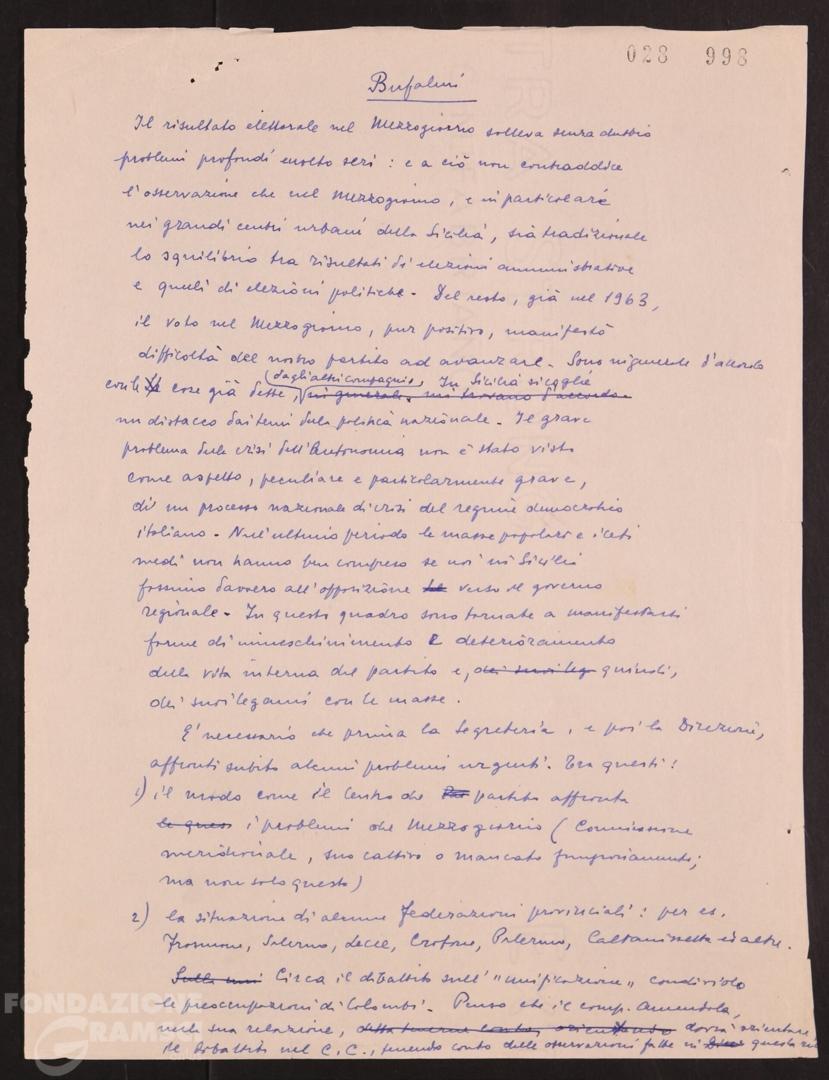 028 998
Bufalini
Il risultato elettorale nel Mezzogiorno solleva senza dubbio
problemi profondi e molto seri : e a ciò non contraddice
l'osservazione che nel Mezzogiorno, e in particolare
nei grandi centri urbani della Sicilia, sia tradizionale
lo squilibrio tra risultati di elezioni amministrative
e quelli di elezioni politiche. Del resto, già nel 1963,
il voto nel Mezzogiorno, pur positivo, manifestò
difficoltà del nostro partito ad avanzare. Sono in generale d'accordo
con le cose già dette, dagli altri compagni. In Sicilia si coglie
in generale, mi trovano d'accordo.
un distacco dai temi della politica nazionale. Il grave
problema della crisi dell'Autonomia non è stato visto
come aspetto, peculiare e particolarmente grave,
di un processo nazionale di crisi del regime democratico
italiano. Nell'ultimo periodo le masse popolari e i ceti
medi non hanno ben compreso se noi in Sicilia
fossimo davvero all'opposizione verso il governo
regionale. In questo quadro sono tornate a manifestarsi
forme di immeschinimento e deterioramento
della vita interna del partito e, dei suoi leg quindi,
dei suoi legami con le masse.
E' necessario che prima la Segreteria, e poi la Direzione,
affronti subito alcuni problemi urgenti. Tra questi :
1) il modo come il Centro del partito affronta
le ques i problemi del Mezzogiorno ( Commissione
meridionale, suo cattivo o mancato funzionamento;
ma non solo questo)
2) la situazione di alcune Federazioni provinciali : per es.
Frosinone, Salerno, Lecce, Crotone, Palermo, Caltanissetta ed altre.
Circa il dibattito sull' "unificazione" condivido
le preoccupazioni di Colombi. Penso che il comp. Amendola,
nella sua relazione, tenendo conto, orientando dovrà orientare
il dibattito nel C.C., tenendo conto delle osservazioni fatte in questa
FONDAZIONE
GRAMSCI